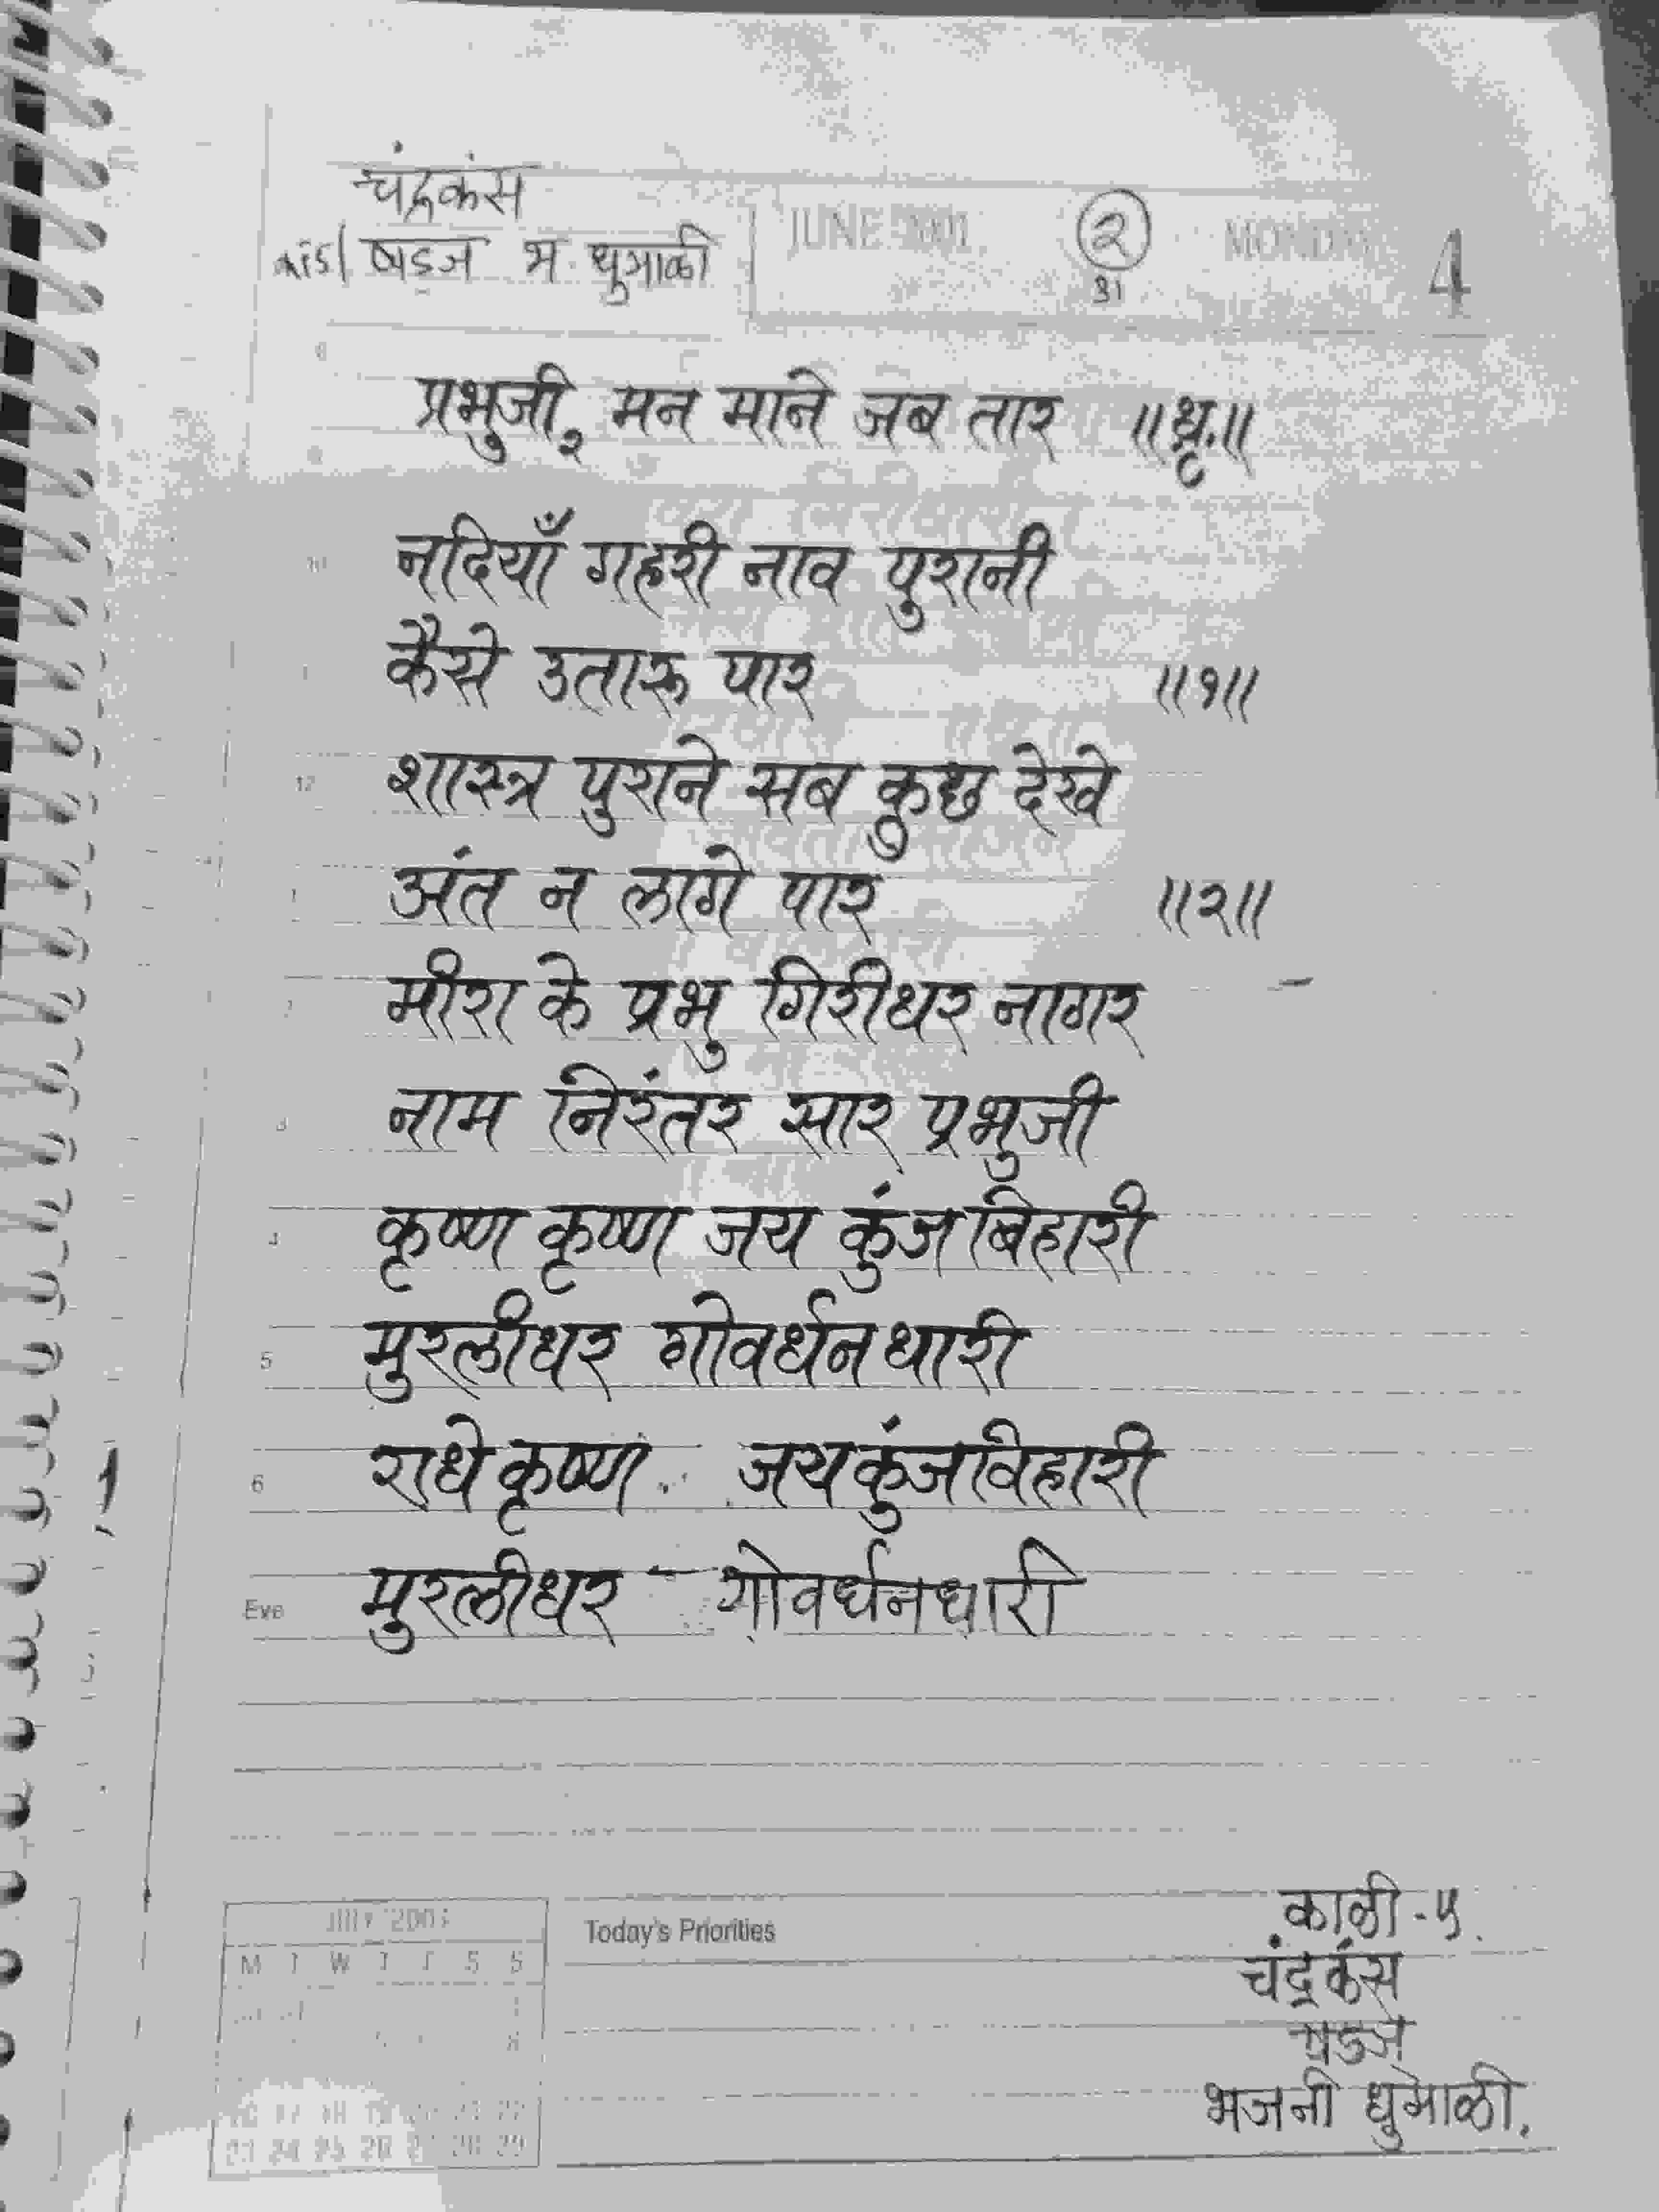 चंद्रकंस
षड्ज भ. धुमाळी
JUNE 2001 २ MONDAY 4
31
प्रभुजी २ मन माने जब तार ॥धृ.॥
नदियाँ गहरी नाव पुरानी
कैसे उतारू पार ॥१॥
शास्त्र पुराने सब कुछ देखे
अंत न लागे पार ॥२॥
मीरा के प्रभु गिरीधर नागर
नाम निरंतर सार प्रभुजी
कृष्ण कृष्ण जय कुंजबिहारी
मुरलीधर गोवर्धनधारी
राधे कृष्ण जयकुंजविहारी
मुरलीधर गोवर्धनधारी
Eve
JULY 2001
M T W T F S S
Today's Priorities
काळी - ५.
चंद्रकंस
षड्ज
भजनी धुमाळी.